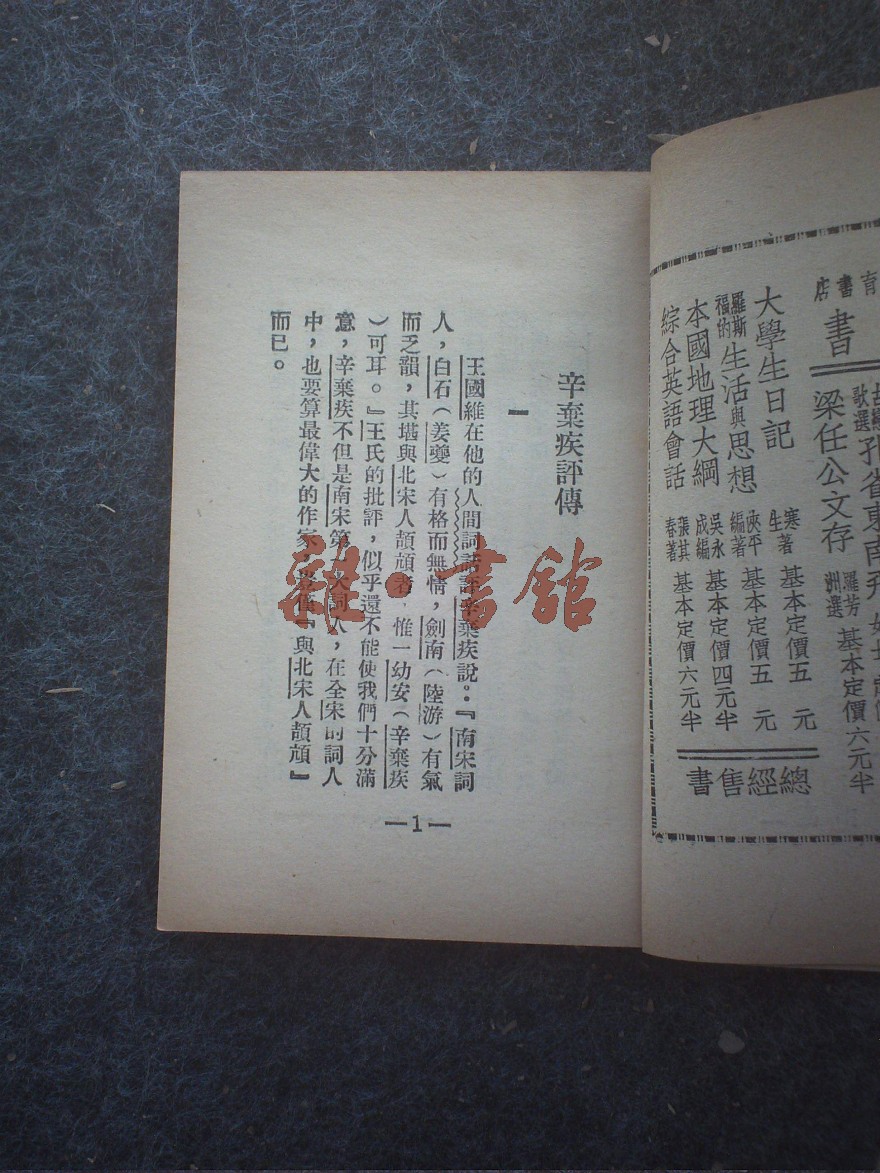 育書店
書
孔雀東南飛
梁任公文存 羅芳洲選 基本定價六元半
大學生日記 寒生著 基本定價五元
羅斯福的生活與思想 俠平編著 基本定價五元
本國地理大綱 吳永成編 基本定價四元半
綜合英語會話 張其春著 基本定價六元半
總經售書
辛棄疾評傳
一
王國維在他的人間詞話評辛棄疾說：『南宋詞
人，白石（姜夔）有格而無情，劍南（陸游）有氣
而乏韻，其堪與北宋人頡頏者，惟一幼安（辛棄疾
）可耳。』王氏的批評，似乎還不能使我們十分滿
意，辛棄疾不但是南宋第一大詞人，在全宋的詞人
中，也要算最偉大的作家，豈僅『與北宋人頡頏』
而已。
—1—
雜·書館